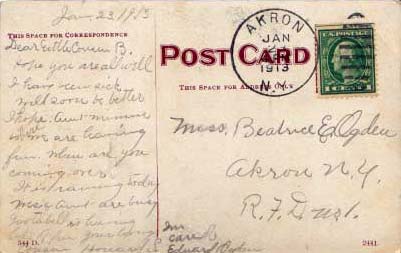 Jan 23/1913
THIS SPACE FOR CORRESPONDENCE
Dear Little Cousin B.
Hope you are all well
I have been sick
will soon be better
I hope. Aunt Minnie
we are having
fun. When are you
coming over.
It is raining today
Music and are busy
is having
your loving
Cousin Howard
544 D.
POST CARD
THIS SPACE FOR ADDRESS ONLY
AKRON
JAN
1913
N.Y.
1 CENT 1
Miss. Beatrice E. Ogden
Akron N.Y.
R.F.D
In
care
Edward Ogden
2441.